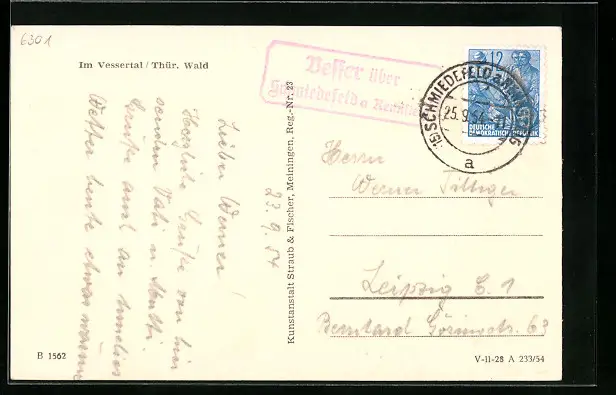 6301
Im Vessertal / Thür. Wald
Vesser über
Schmiedefeld a Rennsteig
12
DEUTSCHE
DEMOKRATISCHE REPUBLIK
SCHMIEDEFELD a. RENNSTEIG
25.9.54
a
23.9.54
Lieber Werner!
Herzliche Grüße von hier
senden Vati u. Mutti.
Grüße auch an
Wetter heute etwas wärmer
Kunstanstalt Straub & Fischer, Meiningen, Reg.-Nr. 23
Herrn
Werner
Leipzig C. 1
63
B 1562
V-11-28 A 233/54